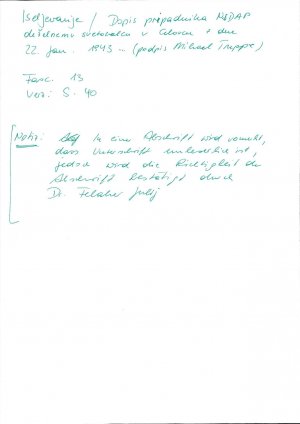 Iseljevanje / Dopis pripadnika NSDAP
deželnemu svetovalcu v Celovcu z dne
22. jan. 1943 – (podpis Michael Truppe)
Fasc. 13
Verz. S. 40
Notiz: In eine Abschrift wird vermerkt,
dass Unterschrift unleserlich ist,
jedoch wird die Richtigkeit der
Abschrift bestätigt durch
Dr. Felaher Julij